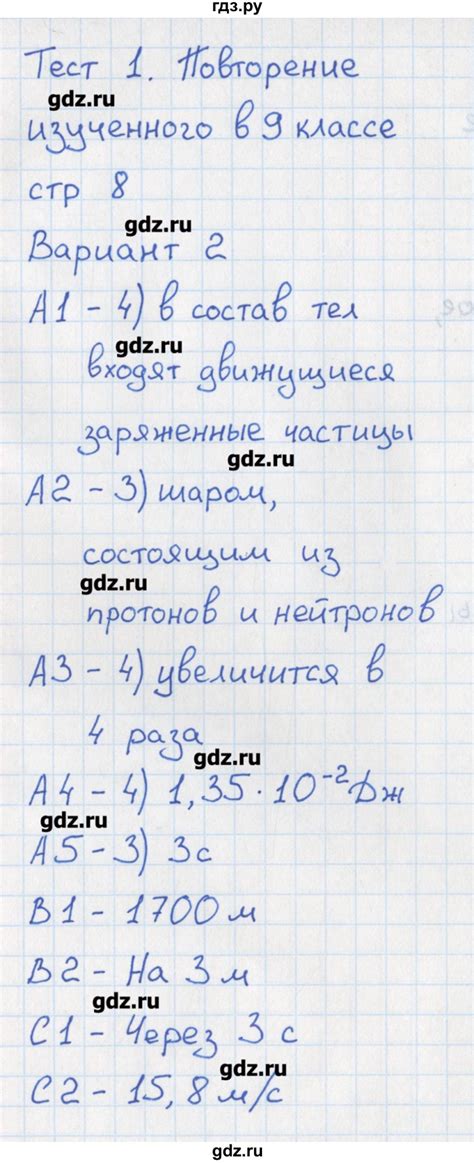 гдз.ру
Тест 1. Повторение
gdz.ru
изученного в 9 классе
стр 8
gdz.ru
Вариант 2
А1 - 4) в состав тел
gdz.ru
входят движущиеся
заряженные частицы
gdz.ru
А2 - 3) шаром,
состоящим из
gdz.ru
протонов и нейтронов
А3 - 4) увеличится в
4 раза
gdz.ru
А4 - 4) 1,35·10⁻² Дж
gdz.ru
А5 - 3) 3с
В1 - 1700 м
В2 - На 3 м
gdz.ru
С1 - Через 3 с
gdz.ru
С2 - 15,8 м/с
gdz.ru